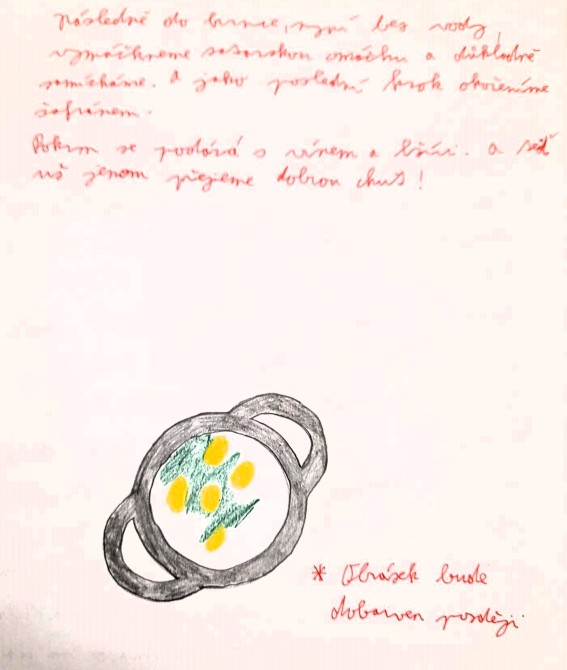 následně do hrnce, nyní bez vody,
vymáčkneme tatarskou omáčku a důkladně
zamícháme. A jako poslední krok okořeníme
šafránem.
Pokrm se podává s vínem a lžící. A teď
už jenom přejeme dobrou chuť!
* Obrázek bude
dobarven později